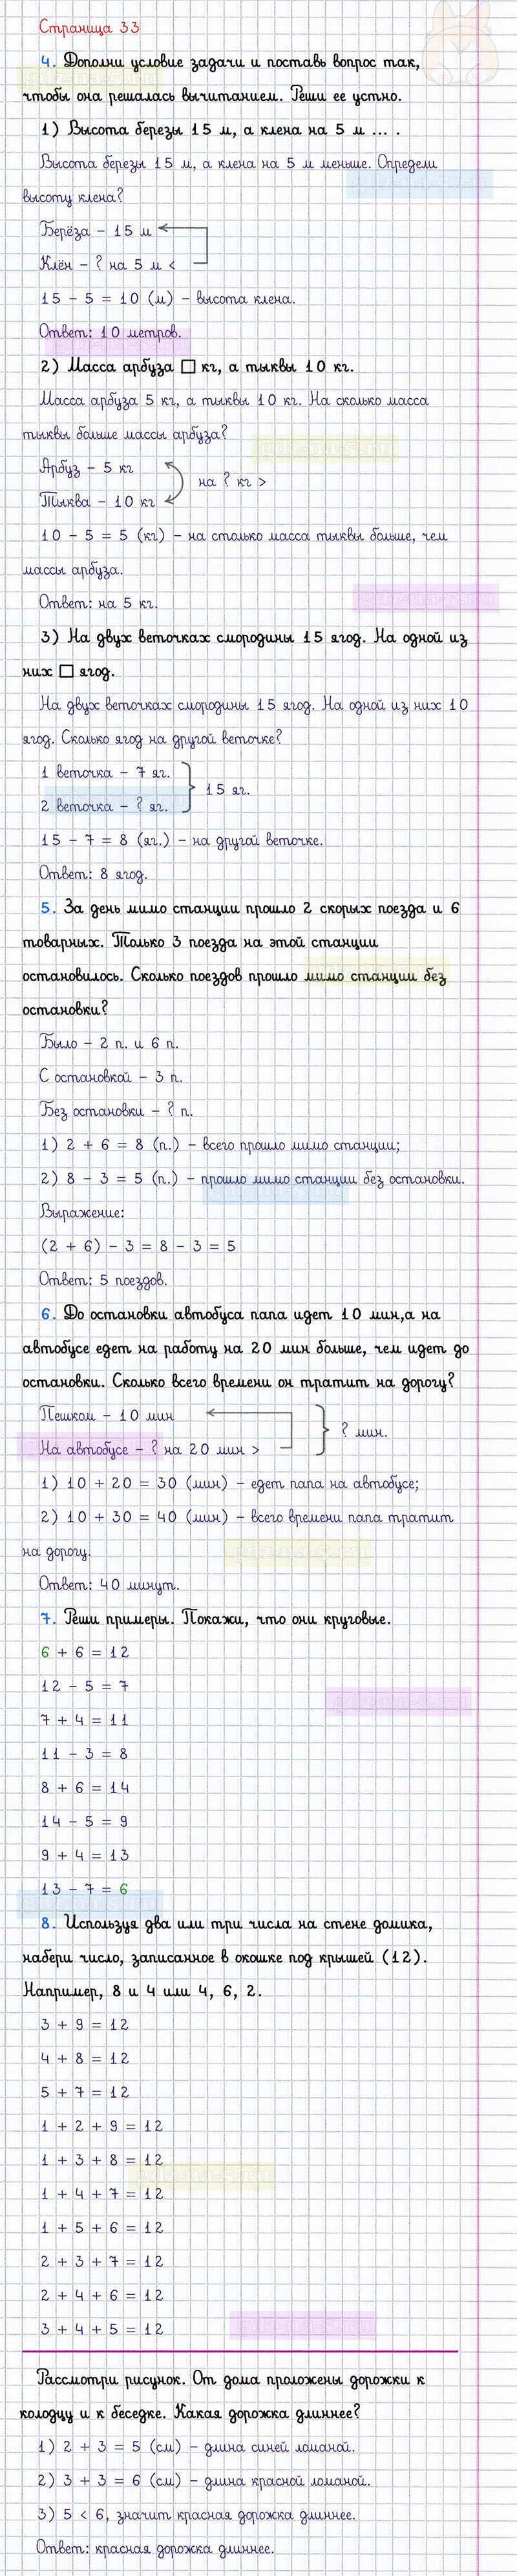 Страница 33
4. Дополни условие задачи и поставь вопрос так,
чтобы она решалась вычитанием. Реши ее устно.
1) Высота березы 15 м, а клена на 5 м ... .
Высота березы 15 м, а клена на 5 м меньше. Определи
высоту клена?
Берёза – 15 м
Клён – ? на 5 м <
15 – 5 = 10 (м) – высота клена.
Ответ: 10 метров.
2) Масса арбуза □ кг, а тыквы 10 кг.
Масса арбуза 5 кг, а тыквы 10 кг. На сколько масса
тыквы больше массы арбуза?
Арбуз – 5 кг
на ? кг >
Тыква – 10 кг
10 – 5 = 5 (кг) – на столько масса тыквы больше, чем
массы арбуза.
Ответ: на 5 кг.
3) На двух веточках смородины 15 ягод. На одной из
них □ ягод.
На двух веточках смородины 15 ягод. На одной из них 10
ягод. Сколько ягод на другой веточке?
1 веточка – 7 яг.
15 яг.
2 веточка – ? яг.
15 – 7 = 8 (яг.) – на другой веточке.
Ответ: 8 ягод.
5. За день мимо станции прошло 2 скорых поезда и 6
товарных. Только 3 поезда на этой станции
остановилось. Сколько поездов прошло мимо станции без
остановки?
Было – 2 п. и 6 п.
С остановкой – 3 п.
Без остановки – ? п.
1) 2 + 6 = 8 (п.) – всего прошло мимо станции;
2) 8 – 3 = 5 (п.) – прошло мимо станции без остановки.
Выражение:
(2 + 6) – 3 = 8 – 3 = 5
Ответ: 5 поездов.
6. До остановки автобуса папа идет 10 мин,а на
автобусе едет на работу на 20 мин больше, чем идет до
остановки. Сколько всего времени он тратит на дорогу?
Пешком – 10 мин
? мин.
На автобусе – ? на 20 мин >
1) 10 + 20 = 30 (мин) – едет папа на автобусе;
2) 10 + 30 = 40 (мин) – всего времени папа тратит
на дорогу.
Ответ: 40 минут.
7. Реши примеры. Покажи, что они круговые.
6 + 6 = 12
12 – 5 = 7
7 + 4 = 11
11 – 3 = 8
8 + 6 = 14
14 – 5 = 9
9 + 4 = 13
13 – 7 = 6
8. Используя два или три числа на стене домика,
набери число, записанное в окошке под крышей (12).
Например, 8 и 4 или 4, 6, 2.
3 + 9 = 12
4 + 8 = 12
5 + 7 = 12
1 + 2 + 9 = 12
1 + 3 + 8 = 12
1 + 4 + 7 = 12
1 + 5 + 6 = 12
2 + 3 + 7 = 12
2 + 4 + 6 = 12
3 + 4 + 5 = 12
Рассмотри рисунок. От дома проложены дорожки к
колодцу и к беседке. Какая дорожка длиннее?
1) 2 + 3 = 5 (см) – длина синей ломаной.
2) 3 + 3 = 6 (см) – длина красной ломаной.
3) 5 < 6, значит красная дорожка длиннее.
Ответ: красная дорожка длиннее.